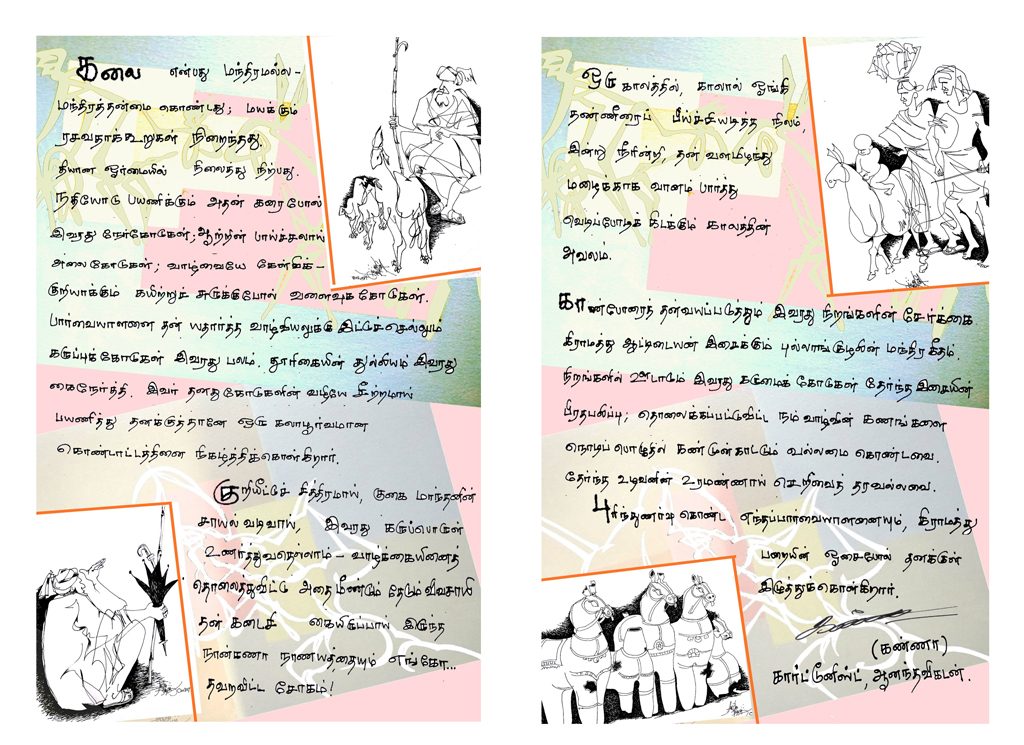 கலை என்பது மந்திரமல்ல -
மந்திரத்தன்மை கொண்டது; மயக்கும்
ரசவதாக்கூறுகள் நிறைந்தது.
தியான ஓர்மையில் நிலைத்து நிற்பது.
நதியோடு பயணிக்கும் அதன் கரைபோல்
இவரது நேர்கோடுகள்; ஆற்றின் பாய்ச்சலாய்
அலைகோடுகள்; வாழ்வையே கேள்விக்-
குறியாக்கும் கயிற்றுச் சுருக்குபோல் வளைவுக்கோடுகள்.
பார்வையாளனை தன் யதார்த்த வாழ்வியலுக்கு இட்டுச்செல்லும்
கருப்புக்கோடுகள் இவரது பலம். தூரிகையின் துல்லியம் இவரது
கைநேர்த்தி. இவர் தனது கோடுகளின் வழியே சீற்றமாய்
பயணித்து தனக்குத்தானே ஒரு கலாபூர்வமான
கொண்டாட்டத்தினை நிகழ்த்திக்கொள்கிறார்.
குறியீட்டுச் சித்திரமாய், குகை மாந்தனின்
சாயல் வடிவாய், இவரது கருப்பொருள்
உணர்த்துவதெல்லாம் - வாழ்க்கையினைத்
தொலைத்துவிட்டு அதை மீண்டும் தேடும் விவசாயி
தன் கடைசி கையிருப்பாய் இருந்த
நான்கணா நாணயத்தையும் எங்கோ...
தவறவிட்ட சோகம்!
ஒரு காலத்தில், காலால் ஓங்கி
தண்ணீரைப் பீய்ச்சியடித்த நிலம்,
இன்று நீரின்றி, தன் வளமிழந்து
மழைக்காக வானம் பார்த்து
வெடிப்போடிக் கிடக்கும் காலத்தின்
அவலம்.
காண்போரைத் தன்வயப்படுத்தும் இவரது நிறங்களின் சேர்க்கை
கிராமத்து ஆட்டிடையன் இசைக்கும் புல்லாங்குழலின் மந்திரகீதம்.
நிறங்களில் ஊடாடும் இவரது கருமைக் கோடுகள் தேர்ந்த இசையின்
பிரதிபலிப்பு; தொலைக்கப்பட்டுவிட்ட நம் வாழ்வின் கணங்களை
நொடிப் பொழுதில் கண்முன்காட்டும் வல்லமை கொண்டவை.
தேர்ந்த உழவனின் உரமண்ணாய் செறிவைத் தரவல்லவை.
புரிந்துணர்வு கொண்ட எந்தப்பார்வையாளனையும், கிராமத்து
பறையின் ஓசைபோல் தனக்குள்
இழுத்துக்கொள்கிறார்.
(கண்ணா)
கார்ட்டூனிஸ்ட், ஆனந்தவிகடன்.